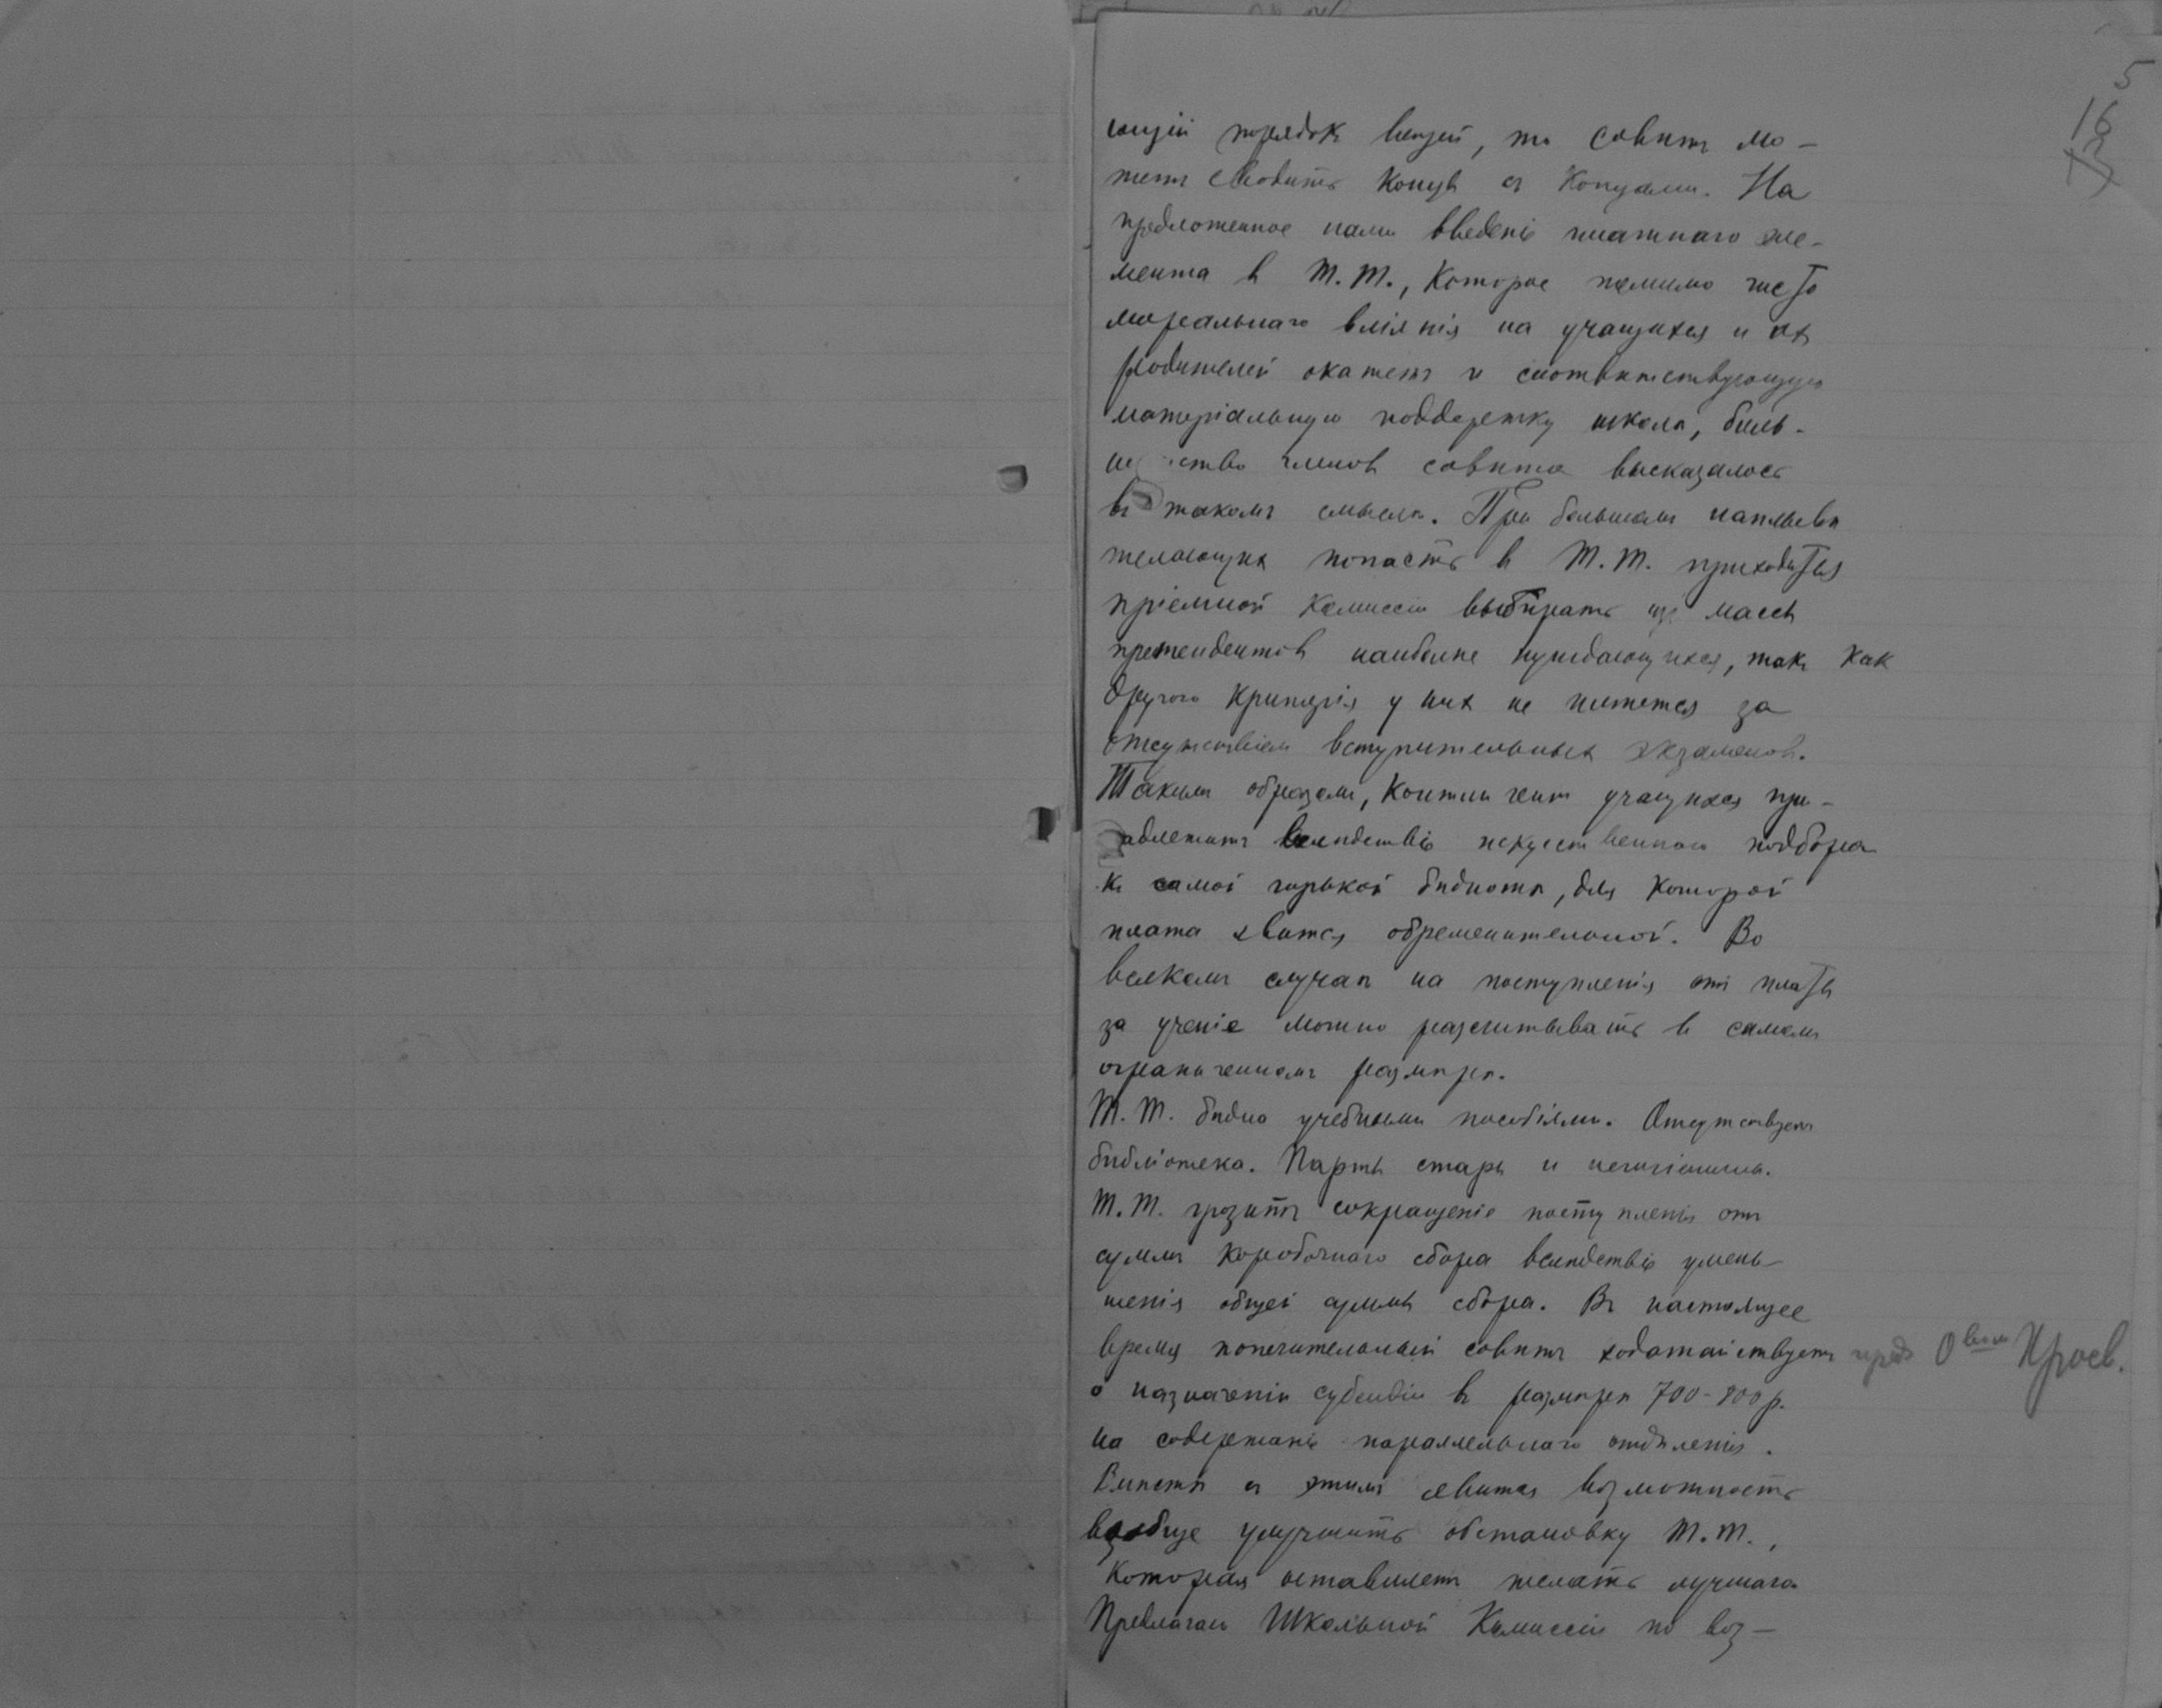 5
16
13
ющій порядокъ вещей, то совѣтъ мо-
жетъ сводить концы съ концами. На
предложенное нами введеніе платнаго эле-
мента въ Т.Т., которое помимо чисто
моральнаго вліянія на учащихся и их
родителей окажетъ и соотвѣтствующую
матеріальную поддержку школѣ, боль-
ш ство членов совѣта высказалось
въ такомъ смыслѣ. При большомъ наплывѣ
желающих попасть в Т.Т. приходится
пріемной комиссіи выбирать изъ массы
претендентов наиболѣе нуждающихся, такъ как
другого критерія у них не имѣется за
отсутствіем вступительных экзаменов.
Таким образом, контингент учащихся при-
адлежитъ вслѣдствіе искусственного подбора
къ самой горькой бѣднотѣ, для которой
плата явится обременительной. Во
всяком случаѣ на поступленія отъ платы
за ученіе можно разсчитывать в самом
ограниченномъ размѣрѣ.
Т.Т. бѣдно учебными пособіями. Отсутствует
библіотека. Парты стары и негигіеничны.
Т.Т. грозитъ сокращеніе поступленія отъ
суммъ коробочнаго сбора вслѣдствіе умень-
шенія общей суммы сбора. Въ настоящее
время попечительный совѣтъ ходатайствуетъ предъ О вом Просв.
о назначеніи субсидіи в размѣрѣ 700-800 р.
на содержаніе параллельнаго отдѣленія.
Вмѣстѣ съ этимъ явится возможность
вообще улучшить обстановку Т.Т.,
которая оставляетъ желать лучшаго.
Предлагаю Школьной Комиссіи по воз-